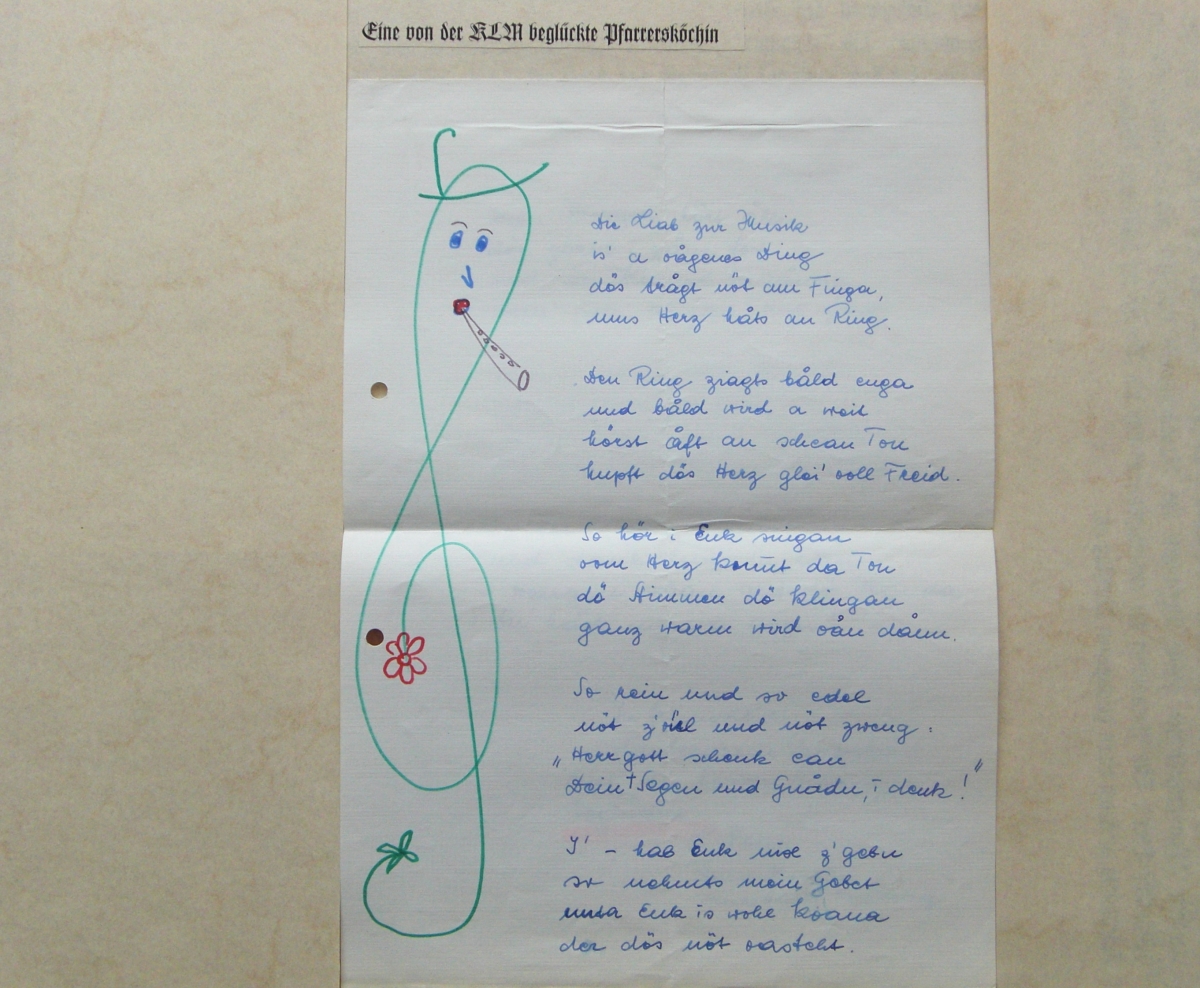 Eine von der KLM beglückte Pfarrersköchin
Die Liab zur Musik
is' a oågenes Ding
dös trågt nöt am Finga,
ums Herz håts an Ring.
Den Ring ziagts båld enga
und båld wird a weit
hörst åft an schean Ton
hupft dös Herz glei' voll Freid.
So hör i Enk singan
vom Herz kommt da Ton
dö Stimmen dö klingan
ganz warm wird oån dånn.
So rein und so edel
nöt z'viel und nöt zweng.
„Herrgott schenk ean
Dein Segen und Gnådn, i denk!"
I' - hab Enk nix z'gebn
so nehmts mein Gebet
unta Enk is wohl koana
der dös nöt vasteht.